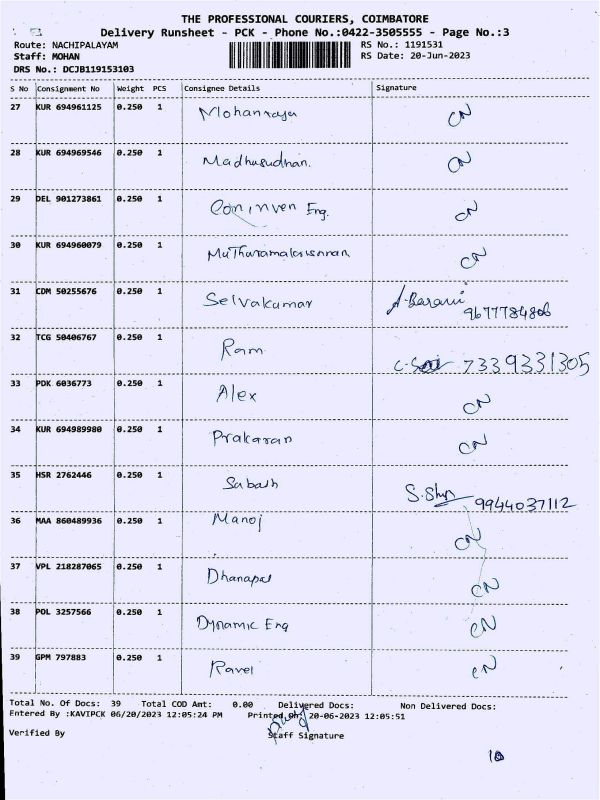 THE PROFESSIONAL COURIERS, COIMBATORE
Delivery Runsheet - PCK - Phone No.:0422-3505555 - Page No.:3
Route: NACHIPALAYAM RS No.: 1191531
Staff: MOHAN RS Date: 20-Jun-2023
DRS No.: DCJB119153103
S No Consignment No Weight PCS Consignee Details Signature
27 KUR 694961125 0.250 1 Mohanraja CN
28 KUR 694969546 0.250 1 Madhusudhan. CN
29 DEL 901273861 0.250 1 Cominven Eng. CN
30 KUR 694960079 0.250 1 CN
31 CDM 50255676 0.250 1 Selvakumar A.Barani 9677784806
32 TCG 50406767 0.250 1 Ram 7339331305
33 PDK 6036773 0.250 1 Alex CN
34 KUR 694989980 0.250 1 Prakaran CN
35 HSR 2762446 0.250 1 Sabash 9944037112
36 MAA 860489936 0.250 1 Manoj CN
37 VPL 218287065 0.250 1 Dhanapal CN
38 POL 3257566 0.250 1 Dynamic Eng CN
39 GPM 797883 0.250 1 Ravel CN
Total No. Of Docs: 39 Total COD Amt: 0.00 Delivered Docs: Non Delivered Docs:
Entered By :KAVIPCK 06/20/2023 12:05:24 PM Printed On: 20-06-2023 12:05:51
Verified By Staff Signature